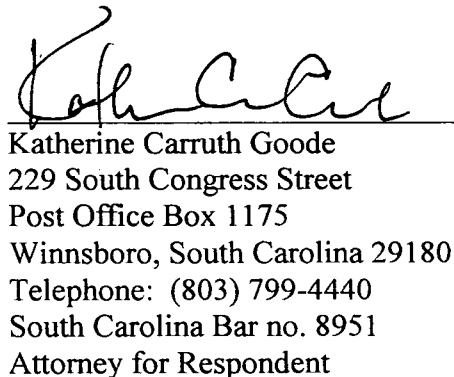 Katherine Carruth Goode
229 South Congress Street
Post Office Box 1175
Winnsboro, South Carolina 29180
Telephone: (803) 799-4440
South Carolina Bar no. 8951
Attorney for Respondent